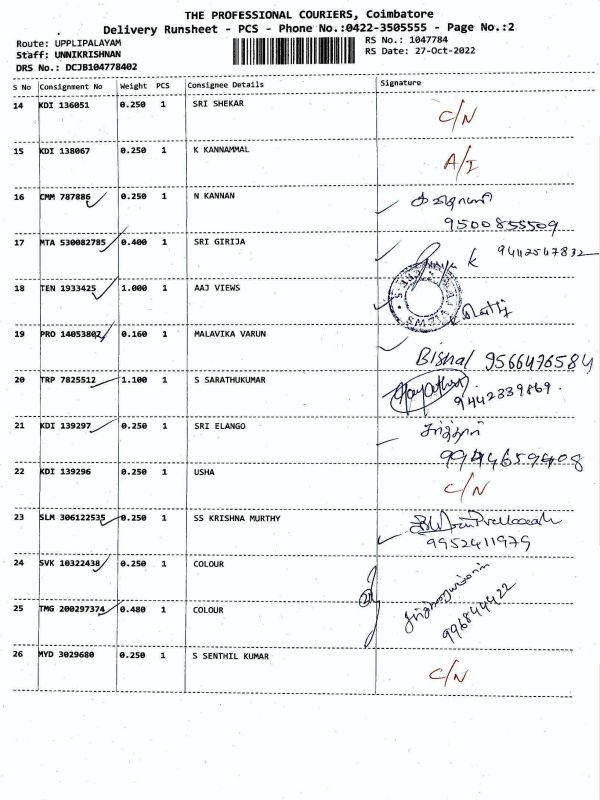 THE PROFESSIONAL COURIERS, Coimbatore
Delivery Runsheet - PCS - Phone No.:0422-3505555 - Page No.:2
Route: UPPLIPALAYAM
RS No.: 1047784
Staff: UNNIKRISHNAN
RS Date: 27-Oct-2022
DRS No.: DCJB104778402
S No Consignment No Weight PCS Consignee Details Signature
14 KDI 136051 0.250 1 SRI SHEKAR C/N
15 KDI 138067 0.250 1 K KANNAMMAL A/I
16 CMM 787886 0.250 1 N KANNAN
9500855509
17 MTA 530082785 0.400 1 SRI GIRIJA K 9442547832
18 TEN 1933425 1.000 1 AAJ VIEWS
19 PRO 14053802 0.160 1 MALAVIKA VARUN
Bishal 9566476584
20 TRP 7825512 1.100 1 S SARATHUKUMAR
9442339869.
21 KDI 139297 0.250 1 SRI ELANGO
22 KDI 139296 0.250 1 USHA C/N
23 SLM 306122535 0.250 1 SS KRISHNA MURTHY
9952411979
24 SVK 10322438 0.250 1 COLOUR
25 TMG 200297374 0.480 1 COLOUR
26 MYD 3029680 0.250 1 S SENTHIL KUMAR C/N